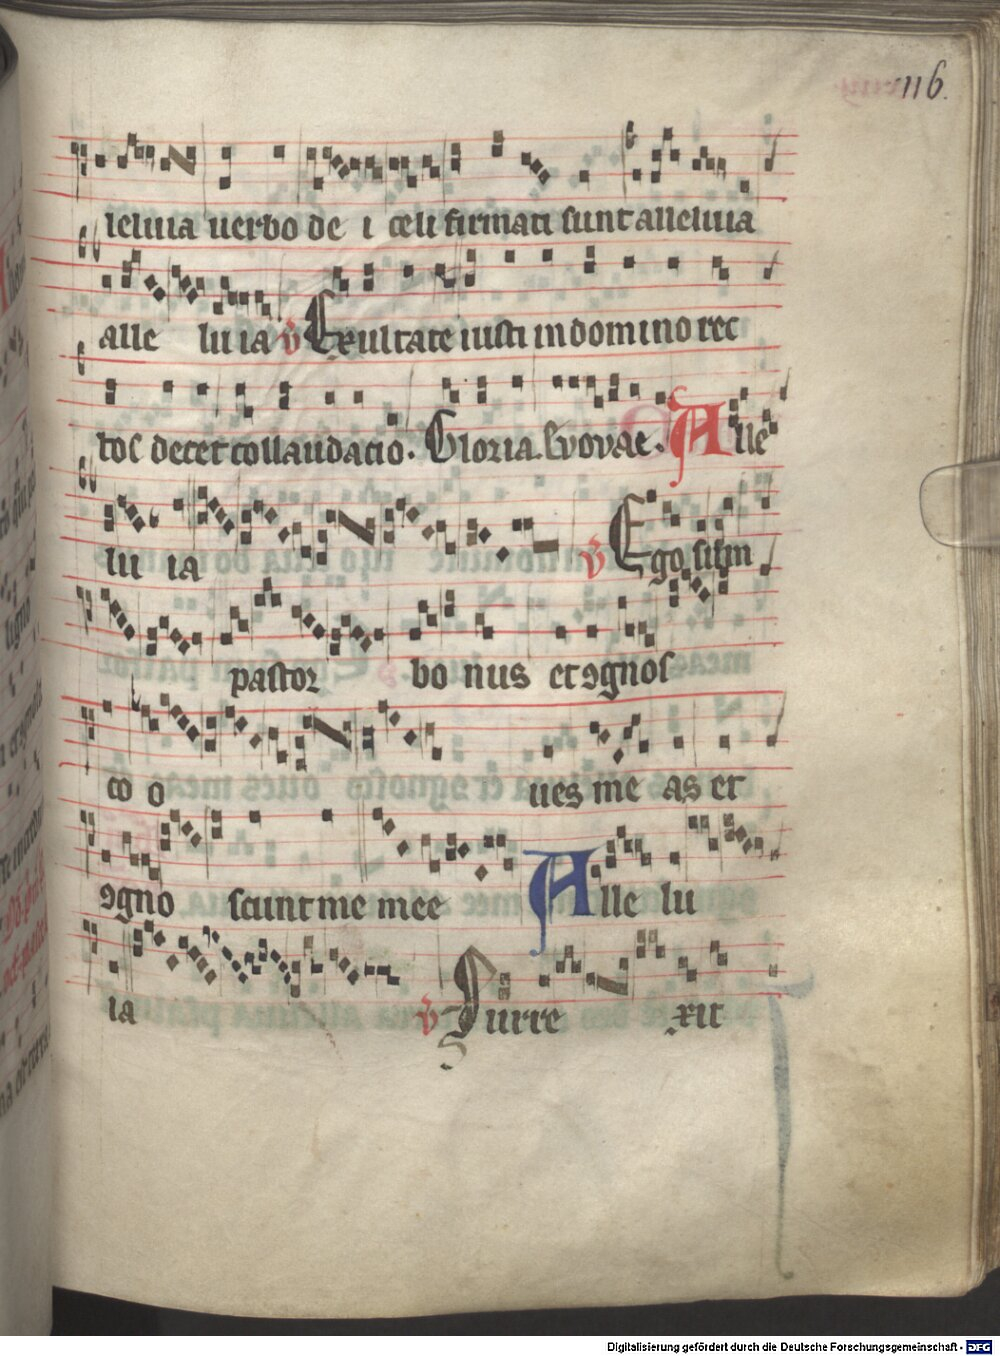 116.
leluia uerbo de i celi firmati sunt alleluia
alle lu ia v Exultate iusti in domino rec
tos decet collaudacio. Gloria. Euouae. Alle
lu ia v Ego sum
pastor bo nus et ꝯgnos
co o ues me as et
ꝯgno scunt me mee Alle lu
ia v Surre xit
Digitalisierung gefördert durch die Deutsche Forschungsgemeinschaft - DFG